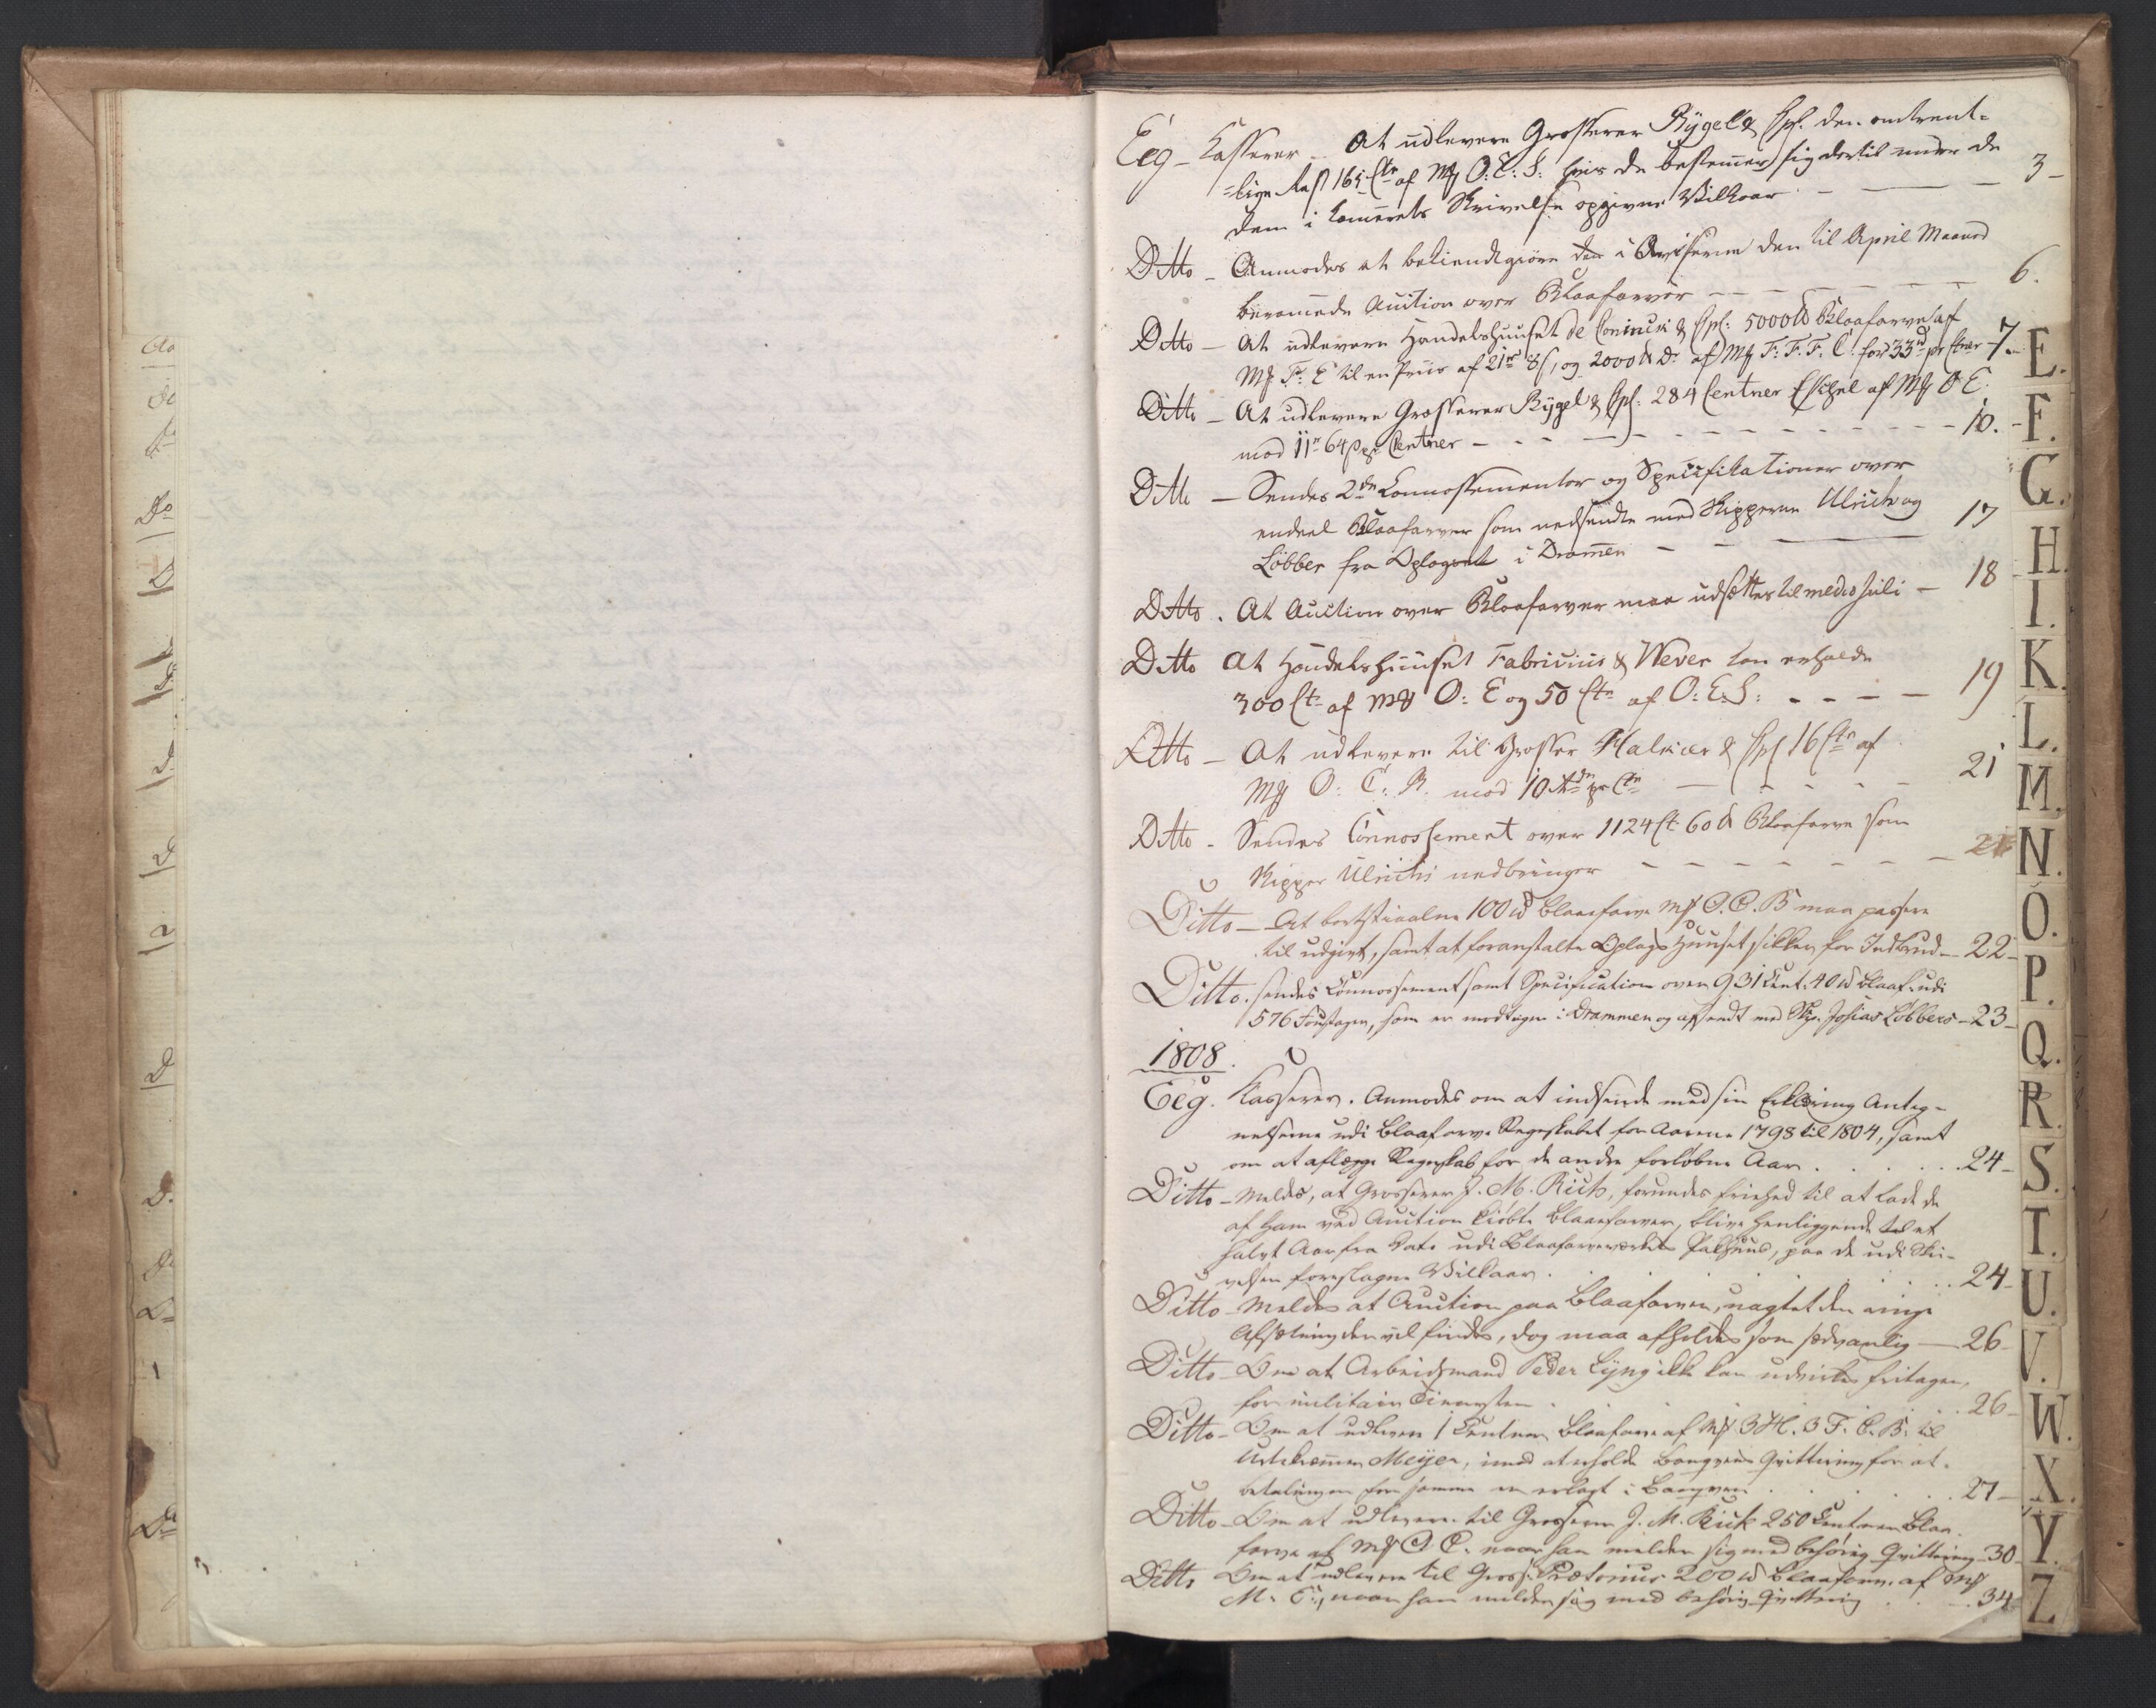 Eeg - Kasserer - At udlevere Grosserer Rÿgel & Cpl. den omtrent-
=lige Rest 165 Ctr af M O: E: S: hvis de bestemer sig dertil under de
dem i Comerets Skrivelse opgivne Vilkaar - 3
Ditto - Anmodes at bekiendtgiøre i Aviserne den til April Maaned
beramede Auction over Blaafarver - 6.
Ditto - At udlevere Handelshuuset de Coninck & Cpl: 5000 ℔ Blaafarve af
M F: E til en Priis af 21 rd 8 s, og 2000 ℔ Do af M F: F. F. C: for 33 rd pr Ctner 7.
Ditto - At udlevere Grosserer Rÿgel & Cpl: 284 Centner Eschel af M O E:
mod 11 rd 64 s pr Centner - 10.
Ditto - Sendes 2de Connossementer og Specifikationer over
endeel Blaafarver som nedsendte med Skipperne Ulrich og
Löbber fra Oplaget i Dramen - 17
Ditto. At Auction over Blaafarver maa udsættes til medio Juli - 18
Ditto At Handelshuuset Fabricius & Wever kan erholde
300 Ctr af M O: E og 50 Ctr af O: E: S: - 19
Ditto - At udlevere til Grosser Halkier & Cpl 16 Ctr af
M O: E: R. mod 10 rd pr Ctr - 21
Ditto - Sendes Connossement over 1124 Ct 60 ℔ Blaafarve som
Skipper Ulrichs nedbringer - 21
Ditto - At bortstiaalne 100 ℔ Blaafarve M O. E. B maa passere
til udgivt, samt at foranstalte Oplags Huuset sikker for Indbrud - 22
Ditto. sendes Connossement samt Specification over 931 Cent. 40 ℔ Blaaf. udi
576 Foustager, som er modtagen i Drammen og afsendt med Skp. Josias Löbbers - 23
1808.
Eeg. Kasserer. Anmodes om at indsende med sin Erklæring Anteg-
nelserne udi Blaafarve Regnskabet for Aarene 1798 til 1804, samt
om at aflægge Regnskab for de andre forløbne Aar . . . 24
Ditto - Meldes, at Grosserer J. M. Rick, forundes friehed til at lade de
af ham ved Auction kiøbte Blaaefarver, blive henliggende til et
halvt Aar fra Dato udi Blaafarveværkets Pakhuus, paa de udi Skri-
velsen foreslagne Vilkaar . . . 24
Ditto - Meldes at Auction paa Blaafarven, uagtet den ringe
Afsætning der vel findes, dog maa afholdes som sædvanlig - 26
Ditto - Om at Arbeidsmand Peder Lÿng ikke kan udvirkes fritagen,
for militair Tienesten . . . 26
Ditto - Om at udlevere 1 Centner Blaafarve af M 3 H. 3 F. C. B. til
Urtekræmmer Meÿer, imod at erholde Banqvens Qvittering for at
betalingen for samme er erlagt i Banqven . . . 27
Ditto - Om at udlevere til Grosserer J. M. Rick 250 Centner Blaa-
farve af M O. E. naar han melder sig med behørig Qvittering - 30
Ditto Om at udlevere til Gross. Prætorius 200 ℔ Blaafarve af M
M. E:, naar han melder sig med behørig Qvittering . . 34
E.
F.
G.
H.
I.
K.
L.
M.
N.
O.
P.
Q.
R.
S.
T.
U.
V.
W.
X.
Y.
Z